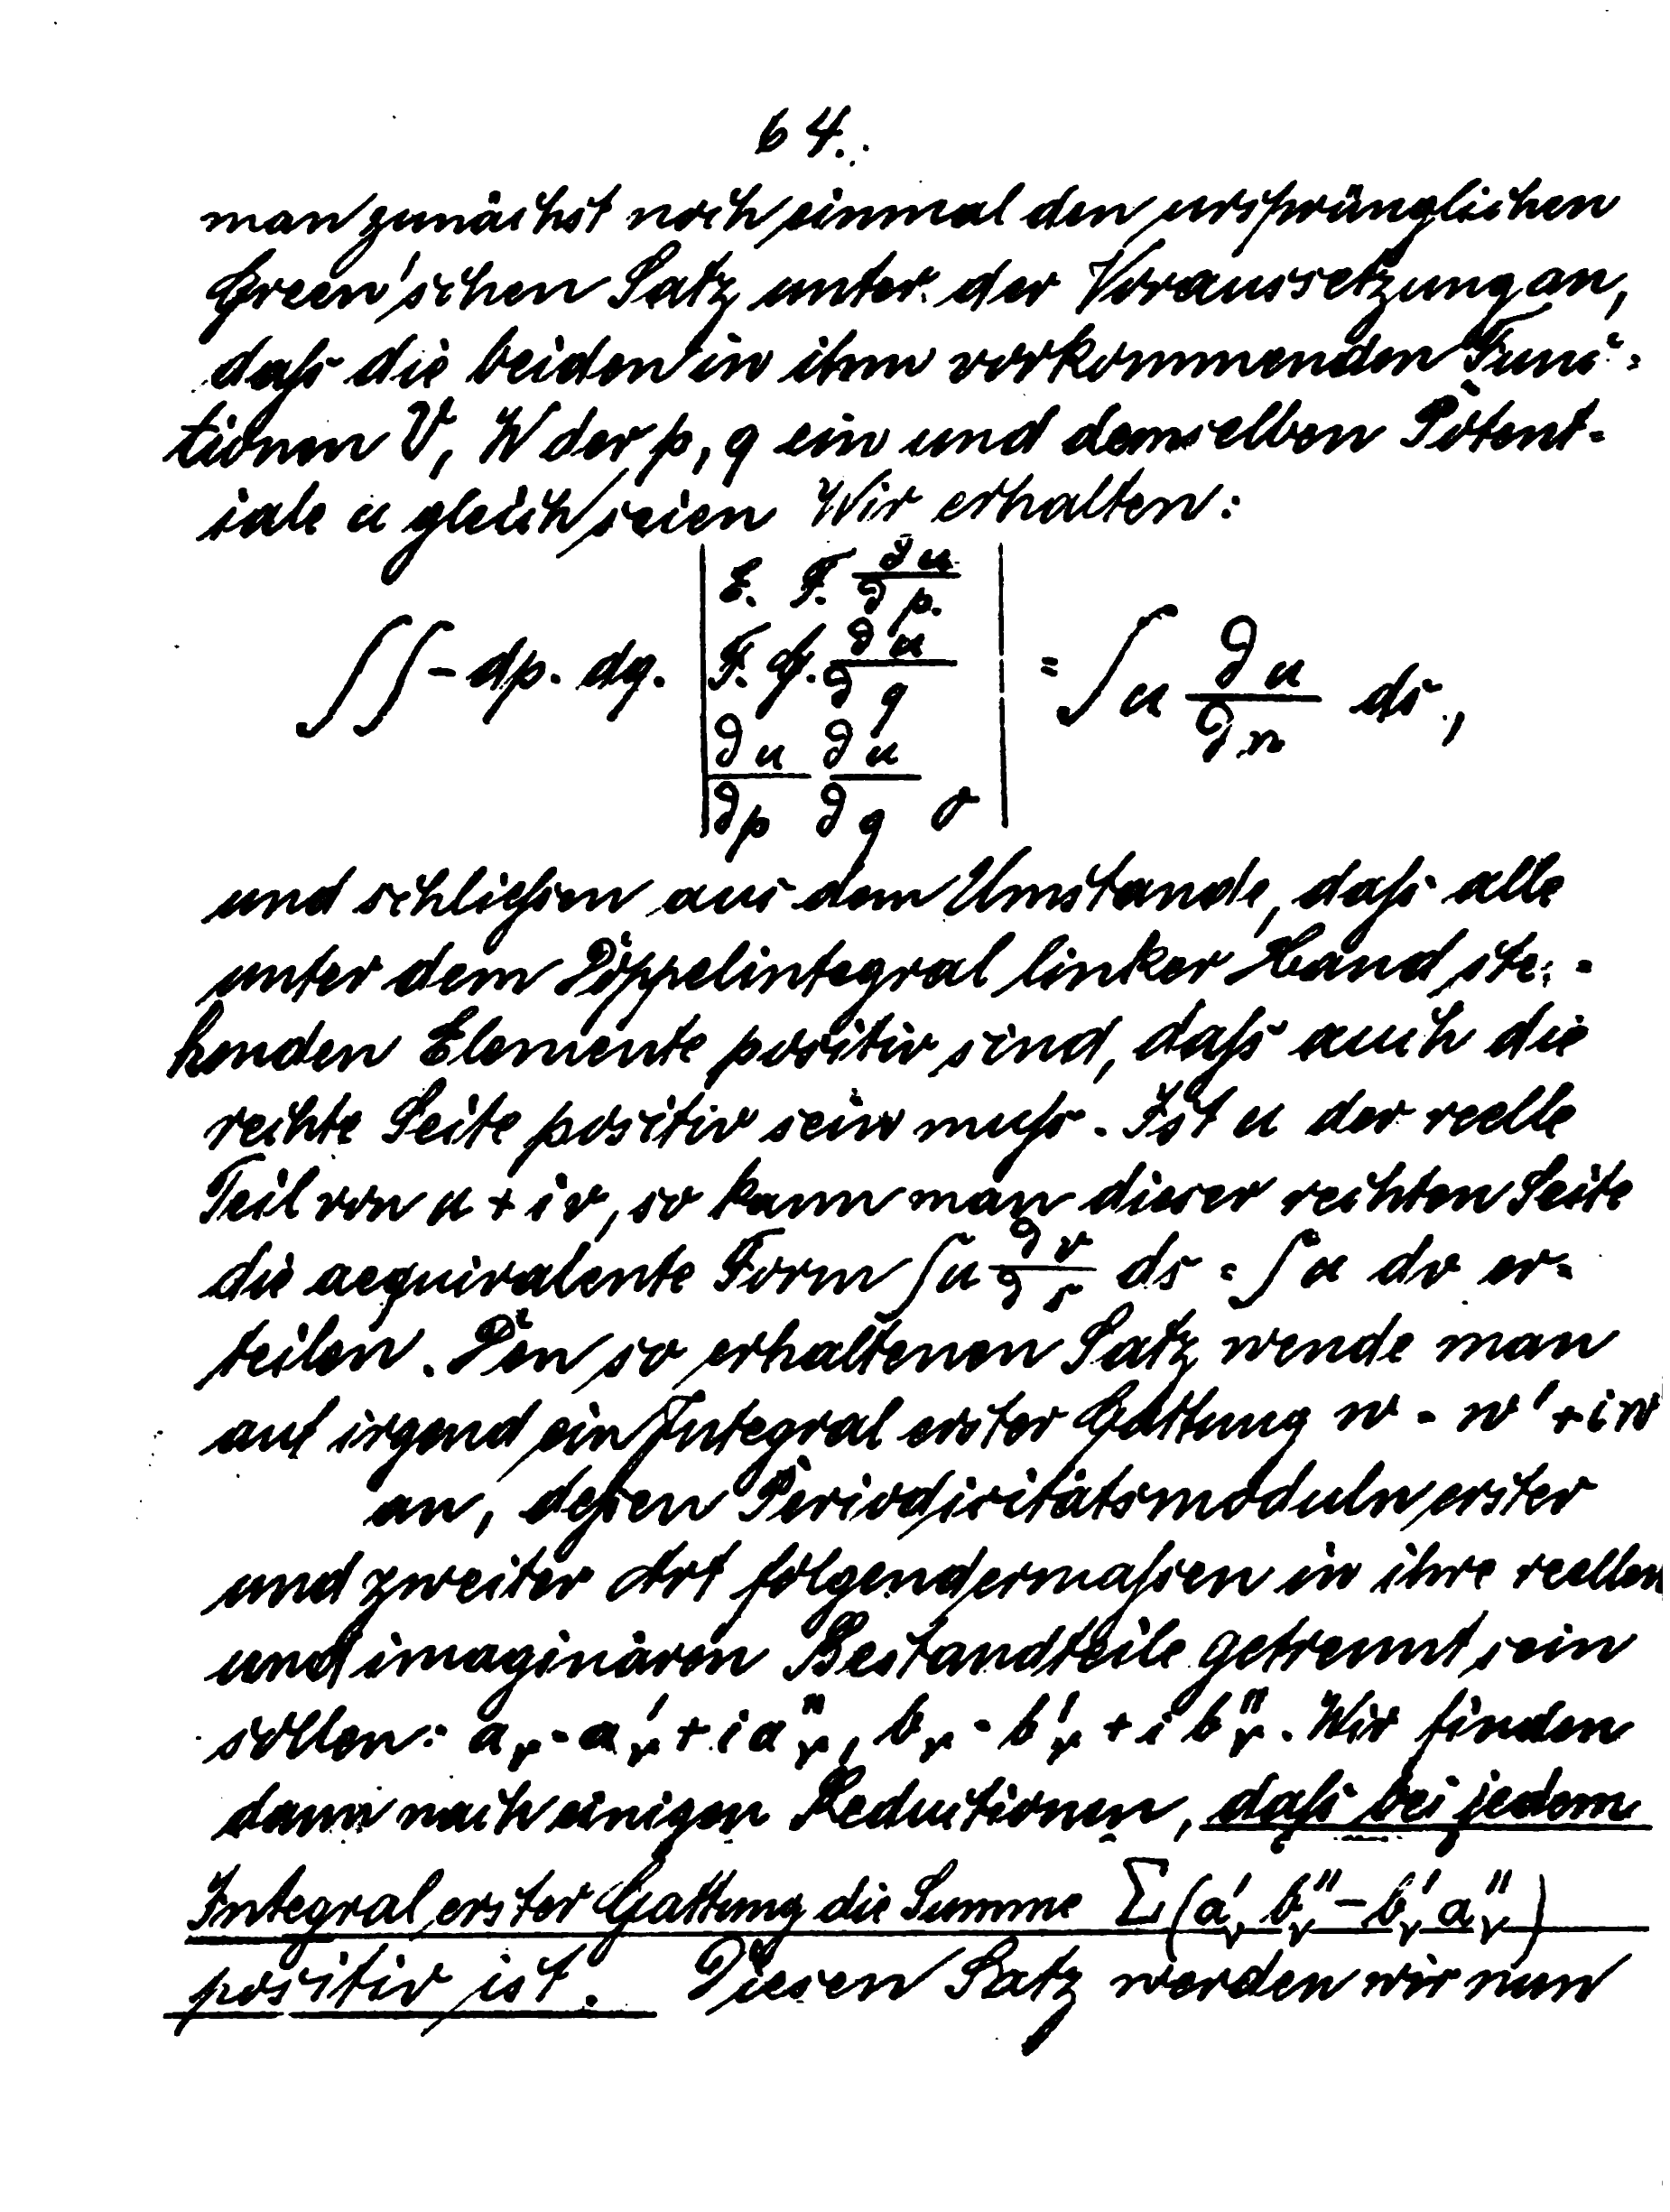 64.
man zunächst noch einmal den ursprünglichen
Green'schen Satz unter der Voraussetzung an,
daß die beiden in ihm vorkommenden Func-
tionen V, W der p, q ein und demselben Potent-
iale u gleich seien Wir erhalten:
∫∫ - dp. dq. | E. F. ∂u/∂p. ; F. G. ∂u/∂q ; ∂u/∂p ∂u/∂q 0 | = ∫ u ∂u/∂n ds,
und schließen aus dem Umstande, daß alle
unter dem Doppelintegral linker Hand ste-
henden Elemente positiv sind, daß auch die
rechte Seite positiv sein muß. Ist u der reelle
Teil von u + iv, so kann man dieser rechten Seite
die aequivalente Form ∫ u ∂v/∂s ds = ∫ u dv er-
teilen. Den so erhaltenen Satz wende man
auf irgend ein Integral erster Gattung w = w' + iw
an, deßen Periodicitätsmoduln erster
und zweiter Art folgendermaßen in ihre reellen
und imaginären Bestandteile getrennt sein
sollen: aᵥ = a'ᵥ + i a''ᵥ, bᵥ = b'ᵥ + i b''ᵥ. Wir finden
dann nach einigen Reductionen, daß bei jedem
Integral erster Gattung die Summe Σ(a'ᵥ b''ᵥ - b'ᵥ a''ᵥ)
positiv ist. Diesen Satz werden wir nun